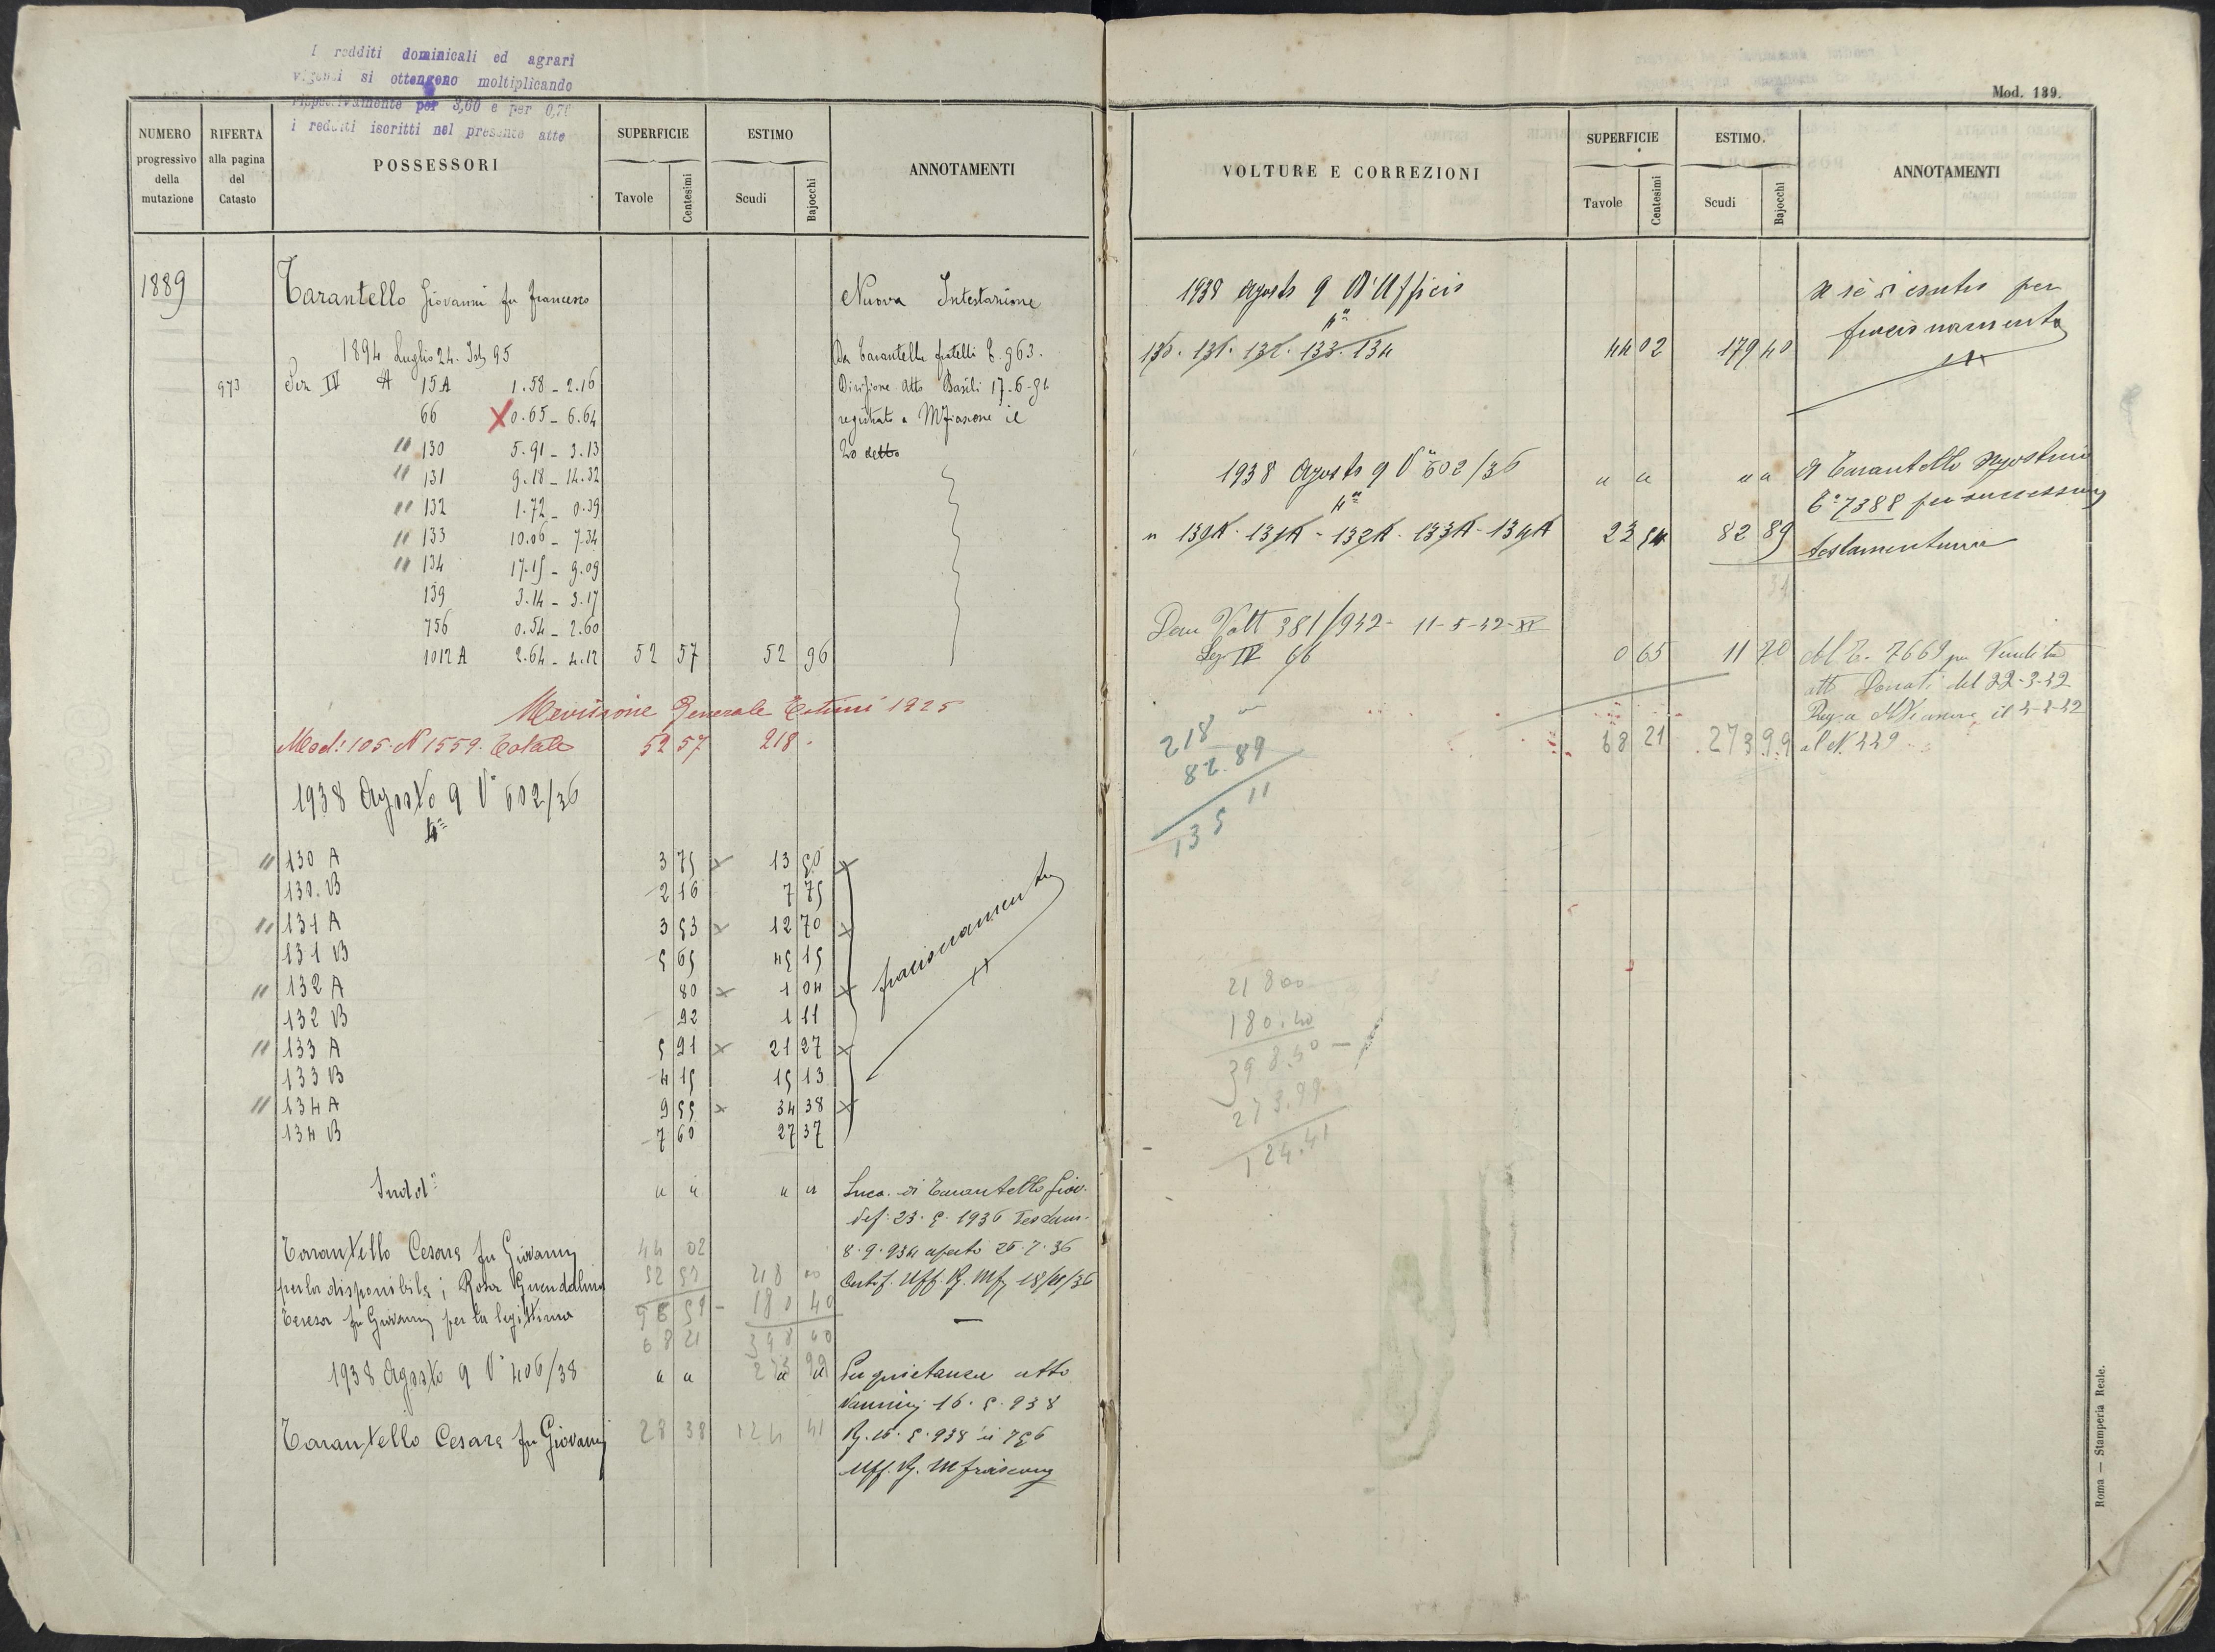 I redditi dominicali ed agrari
vigenti si ottengono moltiplicando
rispettivamente per 3,60 e per 0,70
i redditi iscritti nel presente atto
NUMERO progressivo della mutazione
RIFERTA alla pagina del Catasto
POSSESSORI
SUPERFICIE
Tavole Centesimi
ESTIMO
Scudi Bajocchi
ANNOTAMENTI
1889 Tarantello Giovanni fu Francesco Nuova Intestazione
1894 Luglio 24. 95 Da Tarantello fratelli T. 963.
973 Sez IV A 15A 1.58 - 2.16 Divisione atto Basili 17-6-94
66 X 0.65 - 6.64 registrato a Mfiascone il
" 130 5.91 - 3.13 20 detto
" 131 9.18 - 14.32
" 132 1.72 - 0.39
" 133 10.06 - 7.34
" 134 17.15 - 9.09
139 3.14 - 3.17
756 0.54 - 2.60
1012 A 2.64 - 4.12 52 57 52 96
Revisione Generale Estimi 1925
Mod: 105 N 1559. Totale 52 57 218 -
1938 Agosto 9 V° 602/36
4°
" 130 A 3 75 x 13 50 x
130. B 2 16 7 75
" 131 A 3 53 x 12 70 x
131 B 5 65 45 15
" 132 A 80 x 1 04 x
132 B 92 1 11
" 133 A 5 91 x 21 27 x
133 B 4 15 15 13
" 134 A 9 55 x 34 38 x
134 B 7 60 27 37
frazionamento
Sudd° " " " " Succ. di Tarantello Giov.
def: 23. 5. 1936 Testam.
Tarantello Cesare fu Giovanni 44 02 8. 9. 934 aperto 25. 7. 36
per la disponibile; Rosa Guendalina 52 57 218 00 Certif. Uff. Rg. Mf. 18/11/36
Teresa fu Giovanni per la legittima 96 59 - 180 40
68 21 398 40
273 99
1938 Agosto 9 V° 406/38 " " " " Per quietanza atto
Vannini 16. 5. 938
Tarantello Cesare fu Giovanni 28 38 124 41 Rg. 25. 5. 938 il 756
Uff. Rg. Mfiascone
Mod. 139.
VOLTURE E CORREZIONI
SUPERFICIE
Tavole Centesimi
ESTIMO.
Scudi Bajocchi
ANNOTAMENTI
1938 Agosto 9 D'Ufficio A sè di contro per
4° frazionamento
130. 131. 132. 133. 134 44 02 179 40
1938 Agosto 9 V° 602/36 " " " " A Tarantello Agostino
4° T° 7388 per successione
" 130A - 131A - 132A - 133A - 134A 23 54 82 89 testamentaria
34
Dom Volt 381/942 - 11-5-42-XX
Sez IV 66 0 65 11 70 Al T. 7669 per Vendita
atto Donati del 22-3-42
Reg. a Mfiascone il 4-4-42
68 21 273 99 al N. 449
218 -
82. 89
135 11
21800
180.40
398.40
273.99
124.41
Roma — Stamperia Reale.